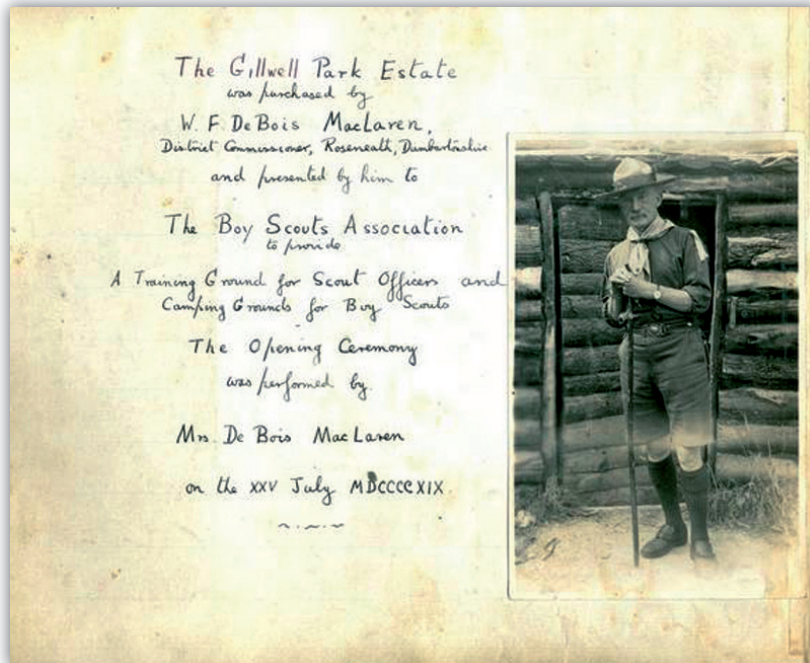 The Gillwell Park Estate
was purchased by
W. F. DeBois MacLaren,
District Commissioner, Roseneath, Dumbartonshire
and presented by him to
The Boy Scouts Association
to provide
A Training Ground for Scout Officers and
Camping Grounds for Boy Scouts
The Opening Ceremony
was performed by
Mrs. De Bois MacLaren
on the XXV July MDCCCCXIX.